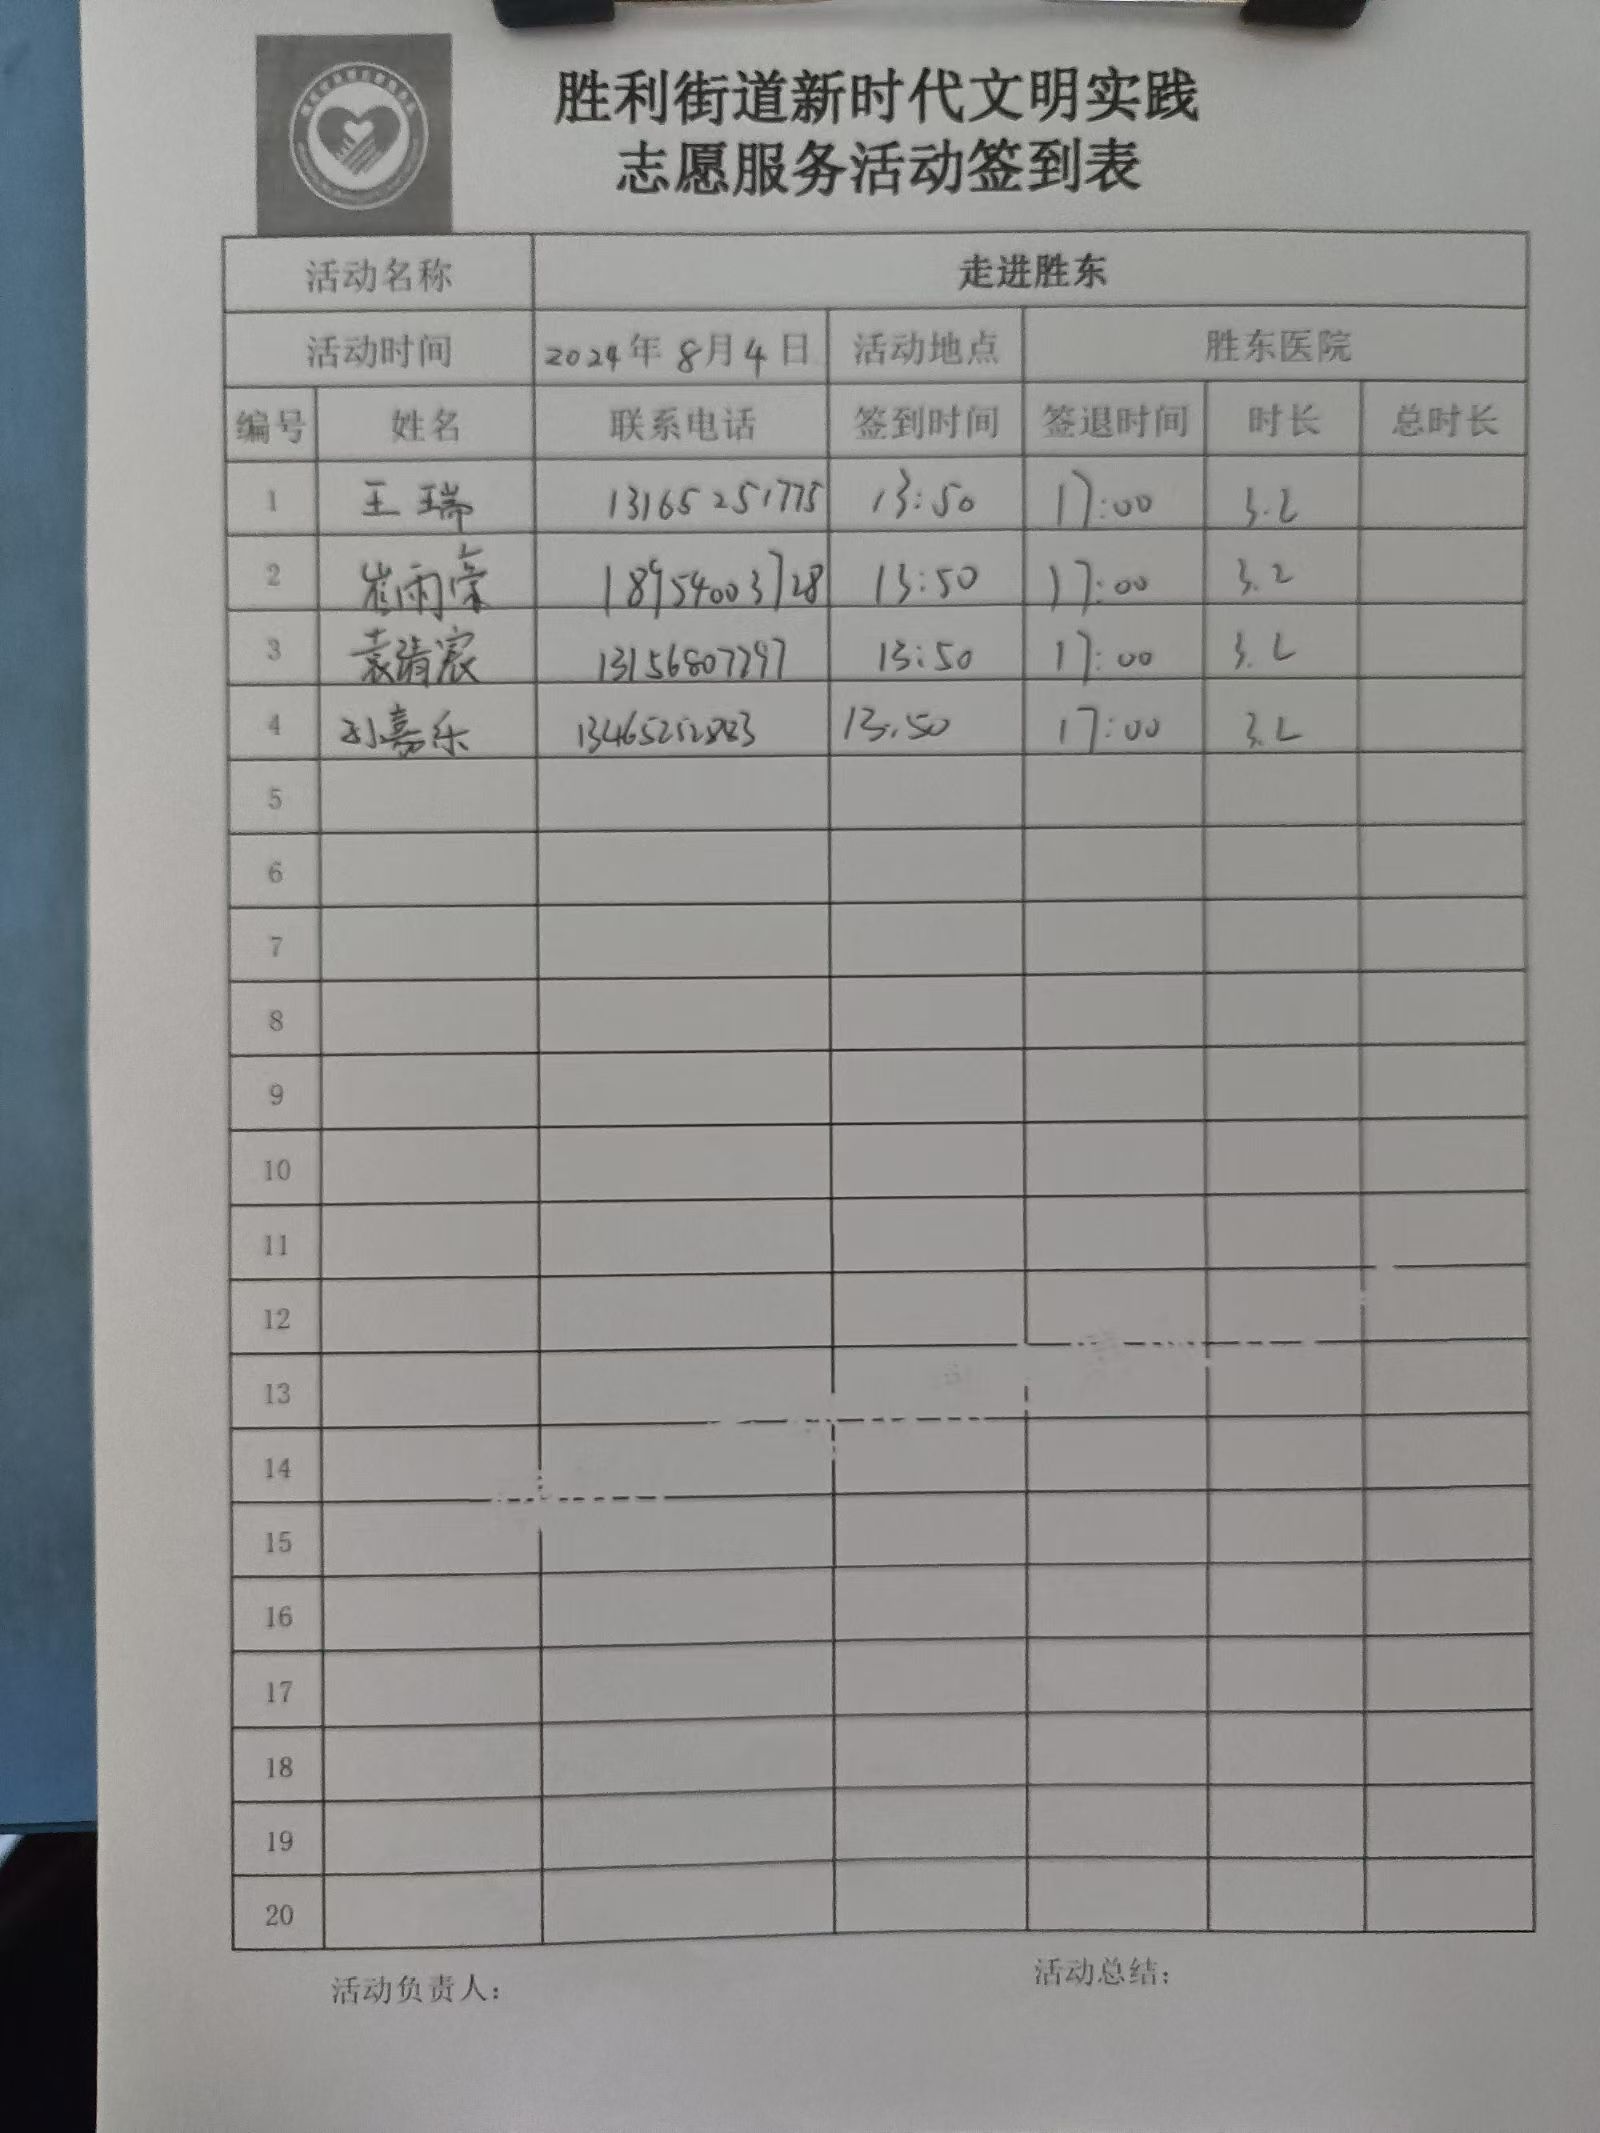 胜利街道新时代文明实践
志愿服务活动签到表
活动名称 走进胜东
活动时间 2024年 8月4日 活动地点 胜东医院
编号 姓名 联系电话 签到时间 签退时间 时长 总时长
1 王瑞 13165251775 13:50 17:00 3.2
2 崔雨 18954003728 13:50 17:00 3.2
3 袁清宸 13156807297 13:50 17:00 3.2
4 孙嘉乐 13.50 17:00 3.2
5
6
7
8
9
10
11
12
13
14
15
16
17
18
19
20
活动负责人： 活动总结：